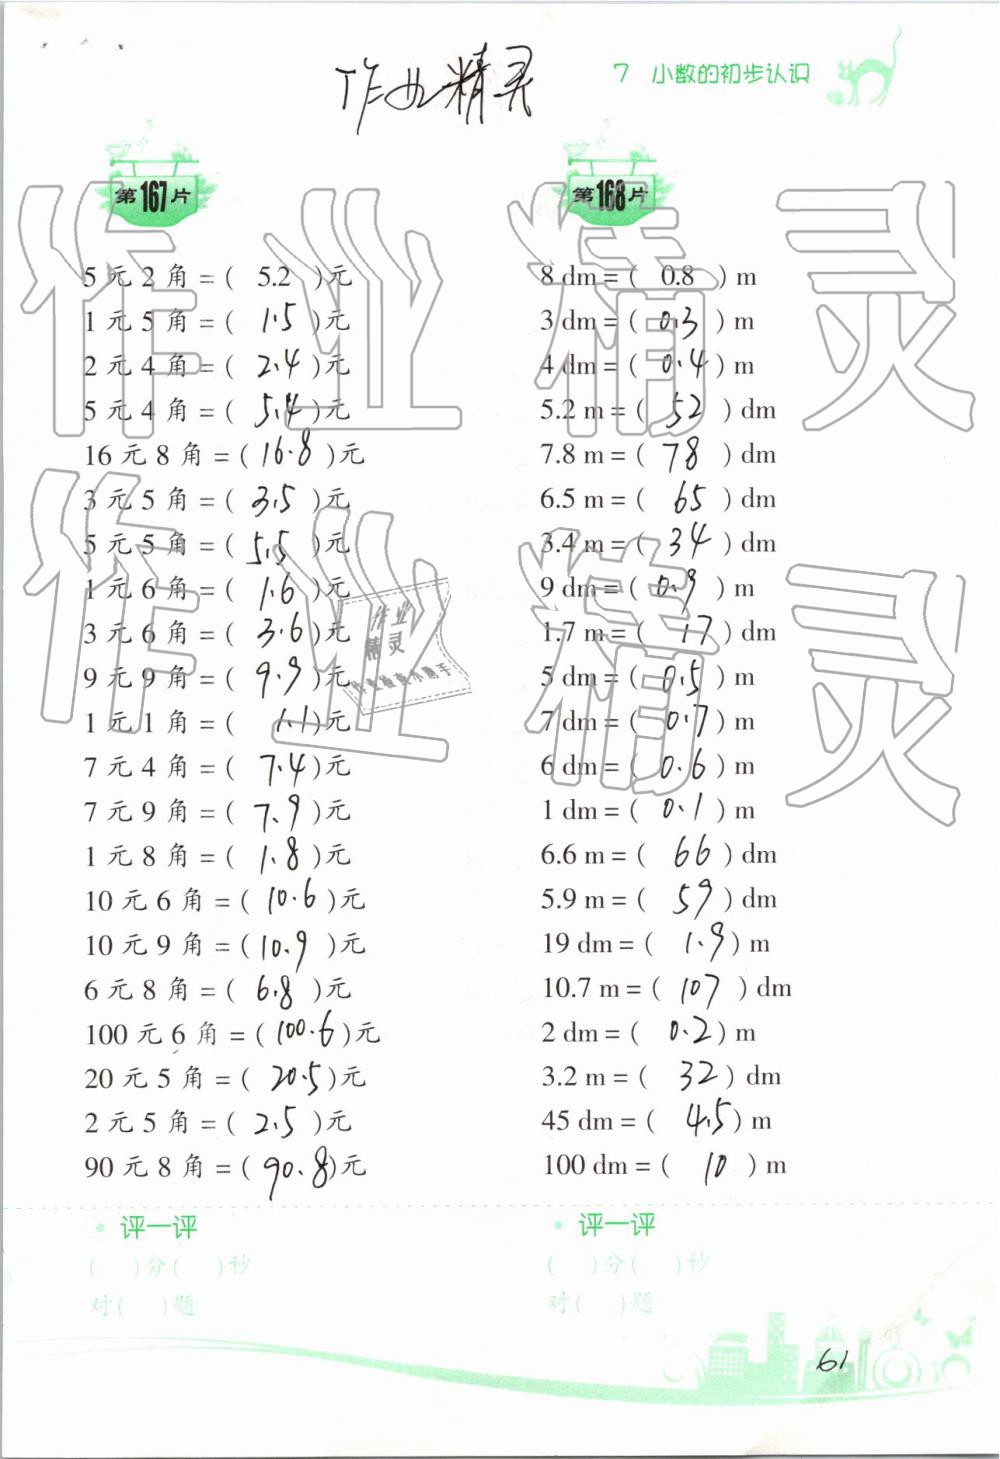 作业精灵
7 小数的初步认识
第167片
5元2角=( 5.2 )元
1元5角=( 1.5 )元
2元4角=( 2.4 )元
5元4角=( 5.4 )元
16元8角=( 16.8 )元
3元5角=( 3.5 )元
5元5角=( 5.5 )元
1元6角=( 1.6 )元
3元6角=( 3.6 )元
9元9角=( 9.9 )元
1元1角=( 1.1 )元
7元4角=( 7.4 )元
7元9角=( 7.9 )元
1元8角=( 1.8 )元
10元6角=( 10.6 )元
10元9角=( 10.9 )元
6元8角=( 6.8 )元
100元6角=( 100.6 )元
20元5角=( 20.5 )元
2元5角=( 2.5 )元
90元8角=( 90.8 )元
评一评
( )分( )秒
对( )题
第168片
8 dm=( 0.8 ) m
3 dm=( 0.3 ) m
4 dm=( 0.4 ) m
5.2 m=( 52 ) dm
7.8 m=( 78 ) dm
6.5 m=( 65 ) dm
3.4 m=( 34 ) dm
9 dm=( 0.9 ) m
1.7 m=( 17 ) dm
5 dm=( 0.5 ) m
7 dm=( 0.7 ) m
6 dm=( 0.6 ) m
1 dm=( 0.1 ) m
6.6 m=( 66 ) dm
5.9 m=( 59 ) dm
19 dm=( 1.9 ) m
10.7 m=( 107 ) dm
2 dm=( 0.2 ) m
3.2 m=( 32 ) dm
45 dm=( 4.5 ) m
100 dm=( 10 ) m
评一评
( )分( )秒
对( )题
61
作业精灵
作业精灵
作业
精灵